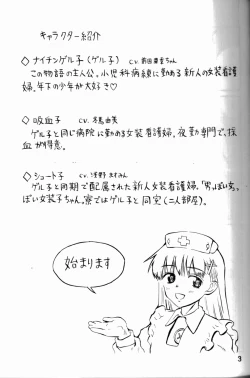 キャラクター紹介
◇ ナイチンゲル子（ゲル子） CV. 前田亜重ちゃん
この物語の主人公。小児科病棟に勤める新人の女装看護
婦。年下の少年が大好き♡
◇ 吸血子 CV.
ゲル子と同じ病院に勤める女装看護婦。夜勤専門で、採
血が得意。
◇ ショート子 CV. 浅野ますみん
ゲル子と同期で配属された新人女装看護婦。「男っぽい女っ
ぽい女装子ちゃん。寮ではゲル子と同室（二人部屋）。
始まります
3